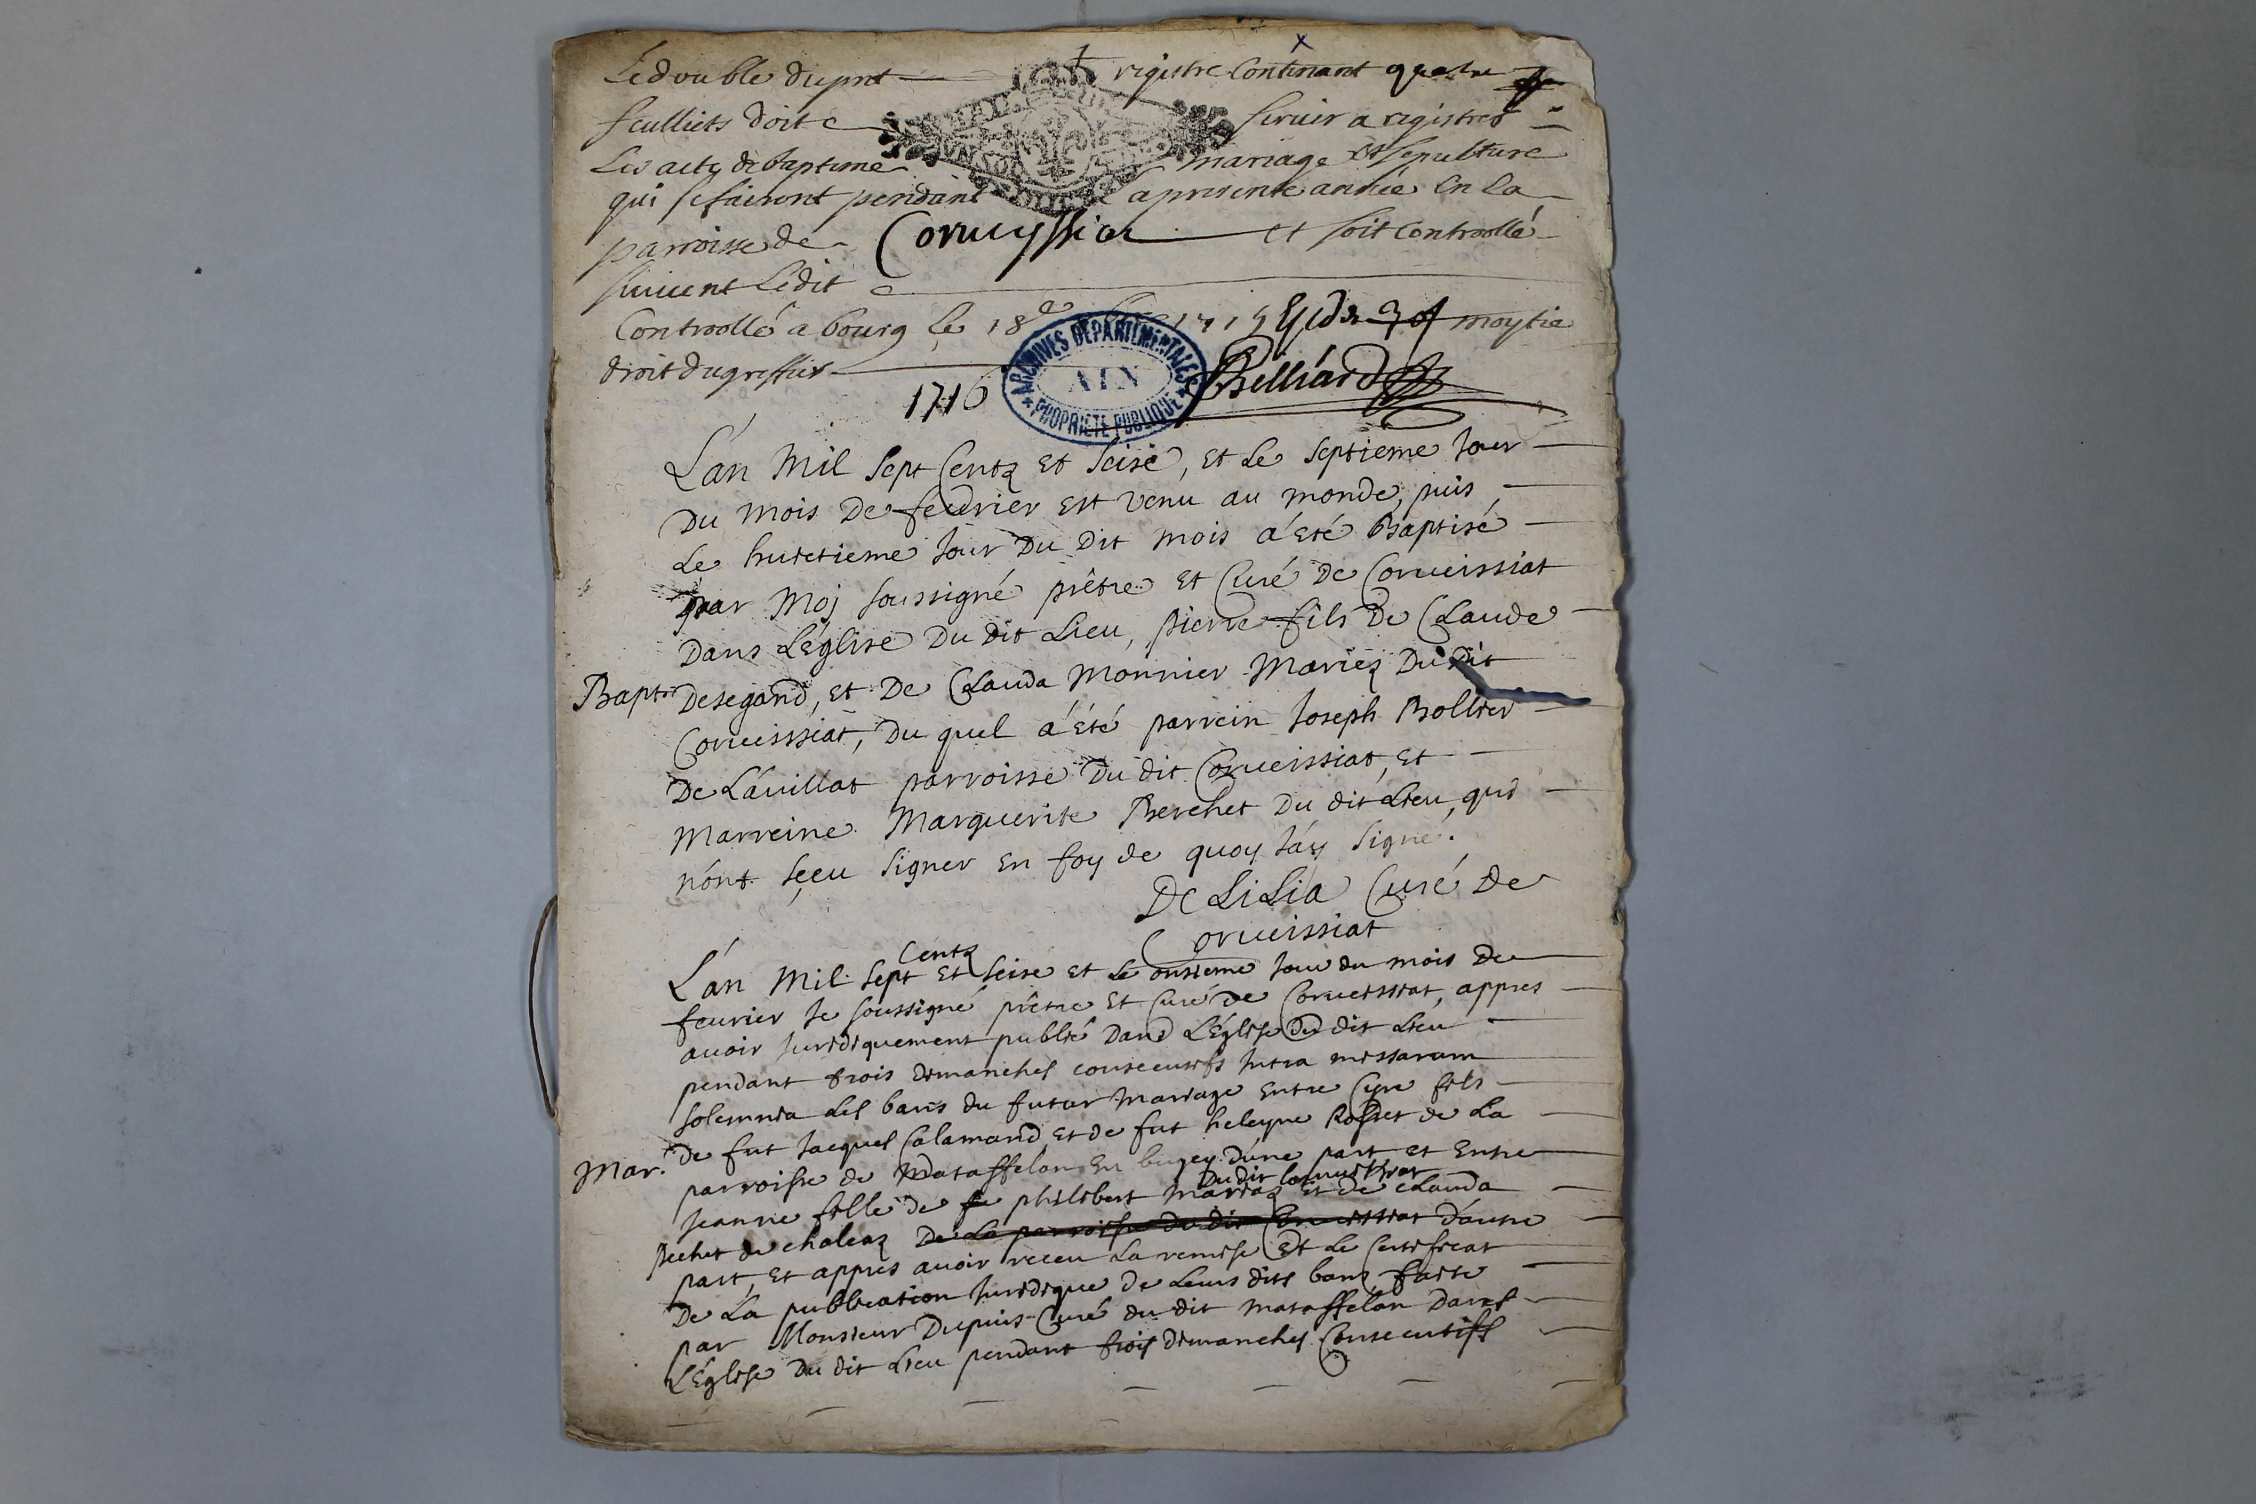 Le double du pnt registre Contenant quatre
feulliets doit servir a registrer
Les acte de baptême mariage Et sepulture
qui se fairont pendant La presente année En La
parroisse de Corveyssia et soit Controollé
suivent Ledit
Controollé a bourg le 18e 1715 moytie
droit du greffier
1716 Billiard
ARCHIVES DEPARTEMENTALES
AIN
PROPRIETE PUBLIQUE
L'an Mil sept Centz Et seise, Et Le septieme Jour
Du mois De fevrier Est venu au monde, puis
Le huictieme Jour Du Dit mois a été Baptisé
par Moj soussigné prêtre Et Curé De Corveissiat
Dans L'église Du dit Lieu, pierre fils De Claude
Bapt. Desegand, Et De Clauda Monnier Mariez Du Dit
Corveissiat, Du quel a été parrein Joseph Bollier
De Lavillat parroisse Du dit Corveissiat, Et
Marreine Marguerite Berchet Du dit Lieu, qui
n'ont sçeu signer En foy de quoy J'ay signé.
De LiLia Curé De
Corveissiat
Centz
L'an Mil sept Et seise Et Le onsieme Jour du mois De
fevrier Je soussigné prêtre Et Curé De Corveissiat, appres
avoir Juridiquement publié Dans L'Église Du dit Lieu
pendant trois dimanches consecutifs Intra missarum
solemnia Les bans du futur Mariage Entre Cyre fils
De fut Jacques Calamand Et de fut heleyne Rosset de La
Mar. parroisse de Mataffelon En bugey d'une part et Entre
Du dit Corveissiat
Jeanne fille de philibert Mariaz Et de Clauda
Pechet de Choleaz De La parroisse du dit Corveissiat D'autre
part, Et appres avoir receu La remise Et Le Certificat
De La publication Juridique De Leurs dits bans faite
par Monsieur Dupuis Curé du dit Mataffelon Dans
L'Église Du dit Lieu pendant trois dimanches Consecutifs